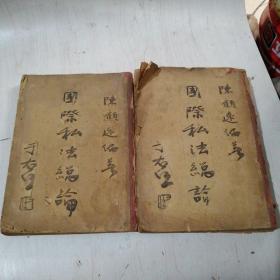 陳顧遠編著
國際私法總論
于右任
陳顧遠編著
國際私法總論
于右任